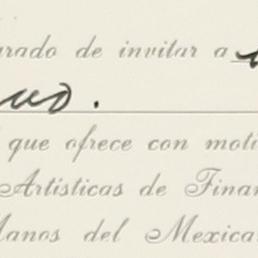 rado de invitar a
que ofrece con moti
Artísticas de Finan
Manos del Mexica